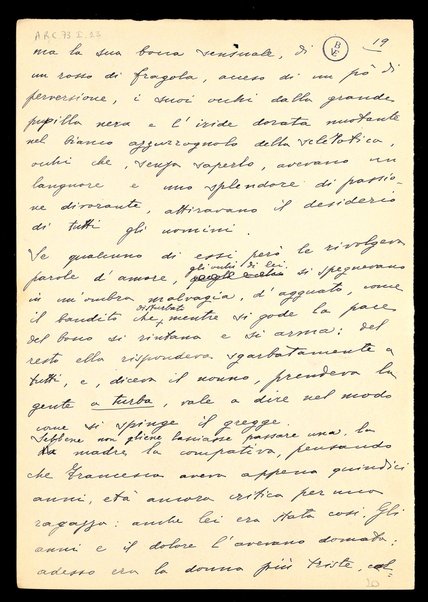 ARC 73 I. 23
19
B
VE
ma la sua bocca sensuale, di
un rosso di fragola, acceso di un pò di
perversione, i suoi occhi dalla grande
pupilla nera e l'iride dorata nuotante
nel bianco azzurrognolo della sclerotica,
occhi che, senza saperlo, avevano un
languore e uno splendore di passio-
ne divorante, attiravano il desiderio
di tutti gli uomini.
Se qualcuno di essi però le rivolgeva
gli occhi di lei
parole d'amore, si spegnevano
in un'ombra malvagia, d'agguato, come
disturbato
il bandito che, mentre si gode la pace
del bosco si rintana e si arma: del
resto ella rispondeva sgarbatamente a
tutti, e, diceva il nonno, prendeva la
gente a turba, vale a dire nel modo
come si spinge il gregge.
Sebbene non gliene lasciasse passare una, la
madre la compativa, pensando
che Francesca aveva appena quindici
anni, età ancora critica per una
ragazza: anche lei era stata così. Gli
anni e il dolore l'avevano domata;
adesso era la donna più triste,
20